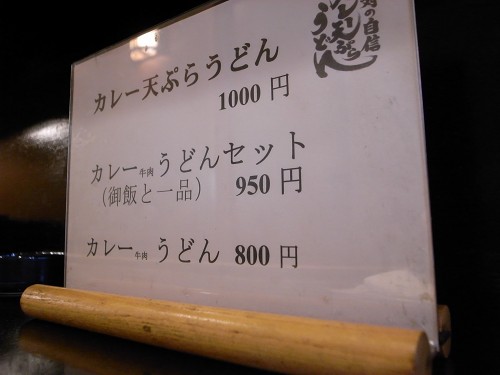 の自信
カレー天ぷら
うどん
カレー天ぷらうどん
1000 円
カレー牛肉うどんセット
（御飯と一品） 950 円
カレー牛肉うどん 800 円